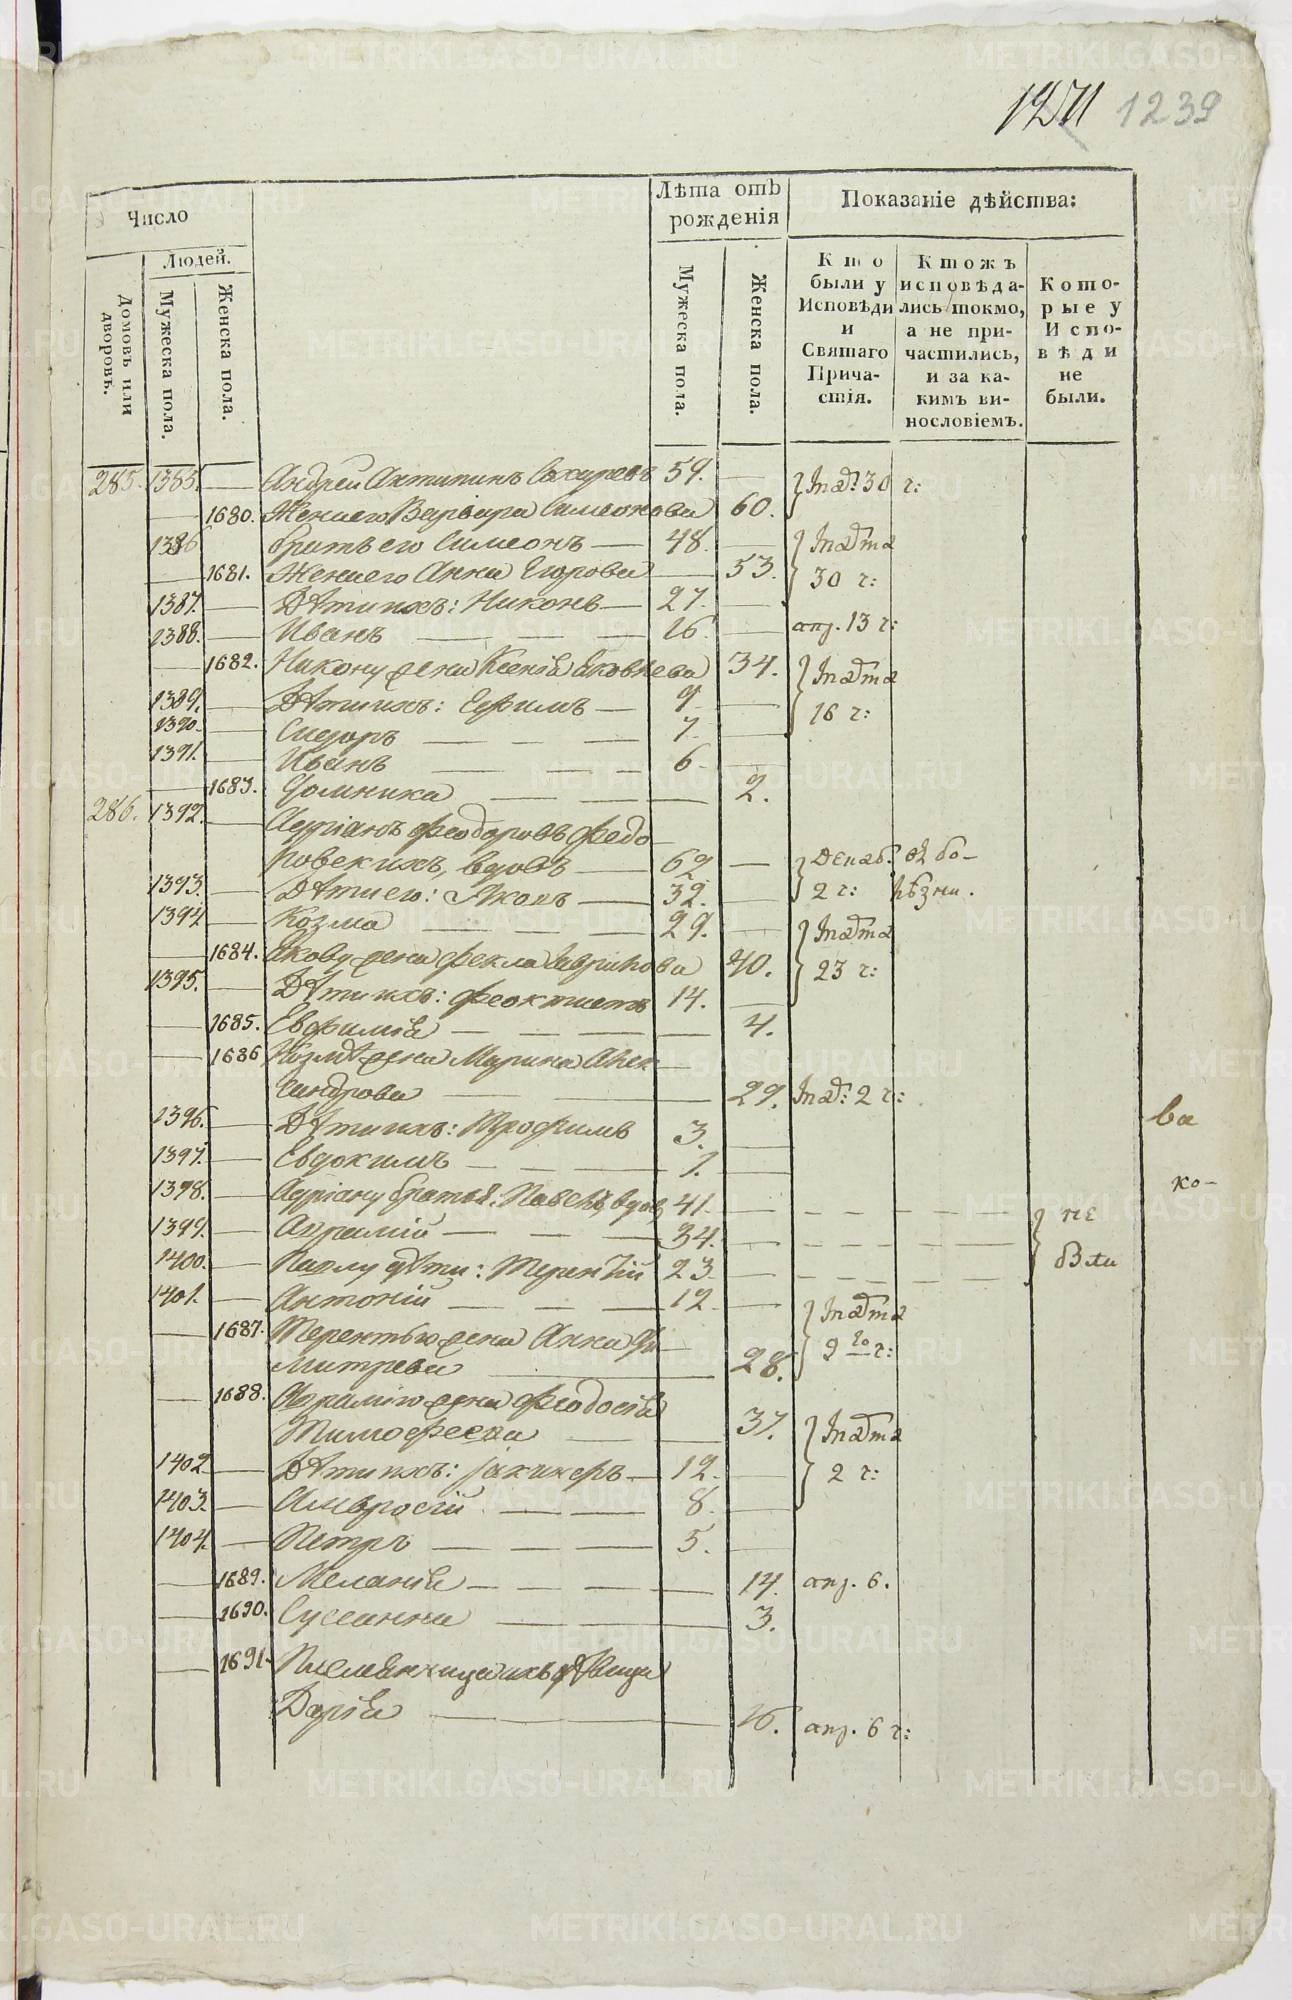 1271 1239
Число
Лѣта отъ рожденія
Показаніе дѣйства:
Людей.
Домовъ или дворовъ.
Мужеска пола.
Женска пола.
Мужеска пола.
Женска пола.
Кто были у Исповѣди и Святаго Причастія.
Ктожъ исповѣдались токмо, а не причастились, и за какимъ винословіемъ.
Которые у Исповѣди не были.
285. 1385. Андрей Антипинъ 59. 30 ч:
1680. Жена его Варвара Симеонова 60.
1386 братъ его Симеонъ — 48.
1681. Жена его Анна Егорова 53. 30 ч:
1387. Дѣти ихъ: Никонъ — 27.
1388. Иванъ 16. апр. 13 ч:
1682. Никону жена Ксенія Яковлева 34.
1389. Дѣти ихъ: Ефимъ — 9 16 ч:
1390. Сидоръ 7.
1391. Иванъ 6
1683. Домника 2.
286. 1392. Адріанъ Феодоровъ Федо
ровскихъ, вдовъ 69 Декаб.
1393. Дѣти его: Яковъ 32. 2 ч:
1394 Козма 29.
1684. Якову жена Фекла Гаврилова 40. 23 ч:
1395. Дѣти ихъ: Феоктистъ 14.
1685. Евфимія 4.
1686 Козмѣ жена Марина Алек
сандрова 29. 2 ч:
ва
1396. Дѣти ихъ: Трофимъ 3.
1397. Евдокимъ 1.
1398. Адріану братья: Павелъ, вдов, 41.
ко-
1399. Аврамій 34. не
1400. Павлу дѣти: Терентій 23 были
1401. Антоній 12
1687. Терентью жена Анна Ди
митрева 28. 2 го ч:
1688. Аврамію жена Феодосія
Тимофеева 37.
1402 Дѣти ихъ: 12. 2 ч:
1403. Амвросій 8.
1404. Петръ 5.
1689. Меланія 14. апр. 6.
1690. Сусанна 3.
1691. Племянница ихъ дѣвица
Дарія 16. апр. 6 ч:
METRIKI.GASO-URAL.RU